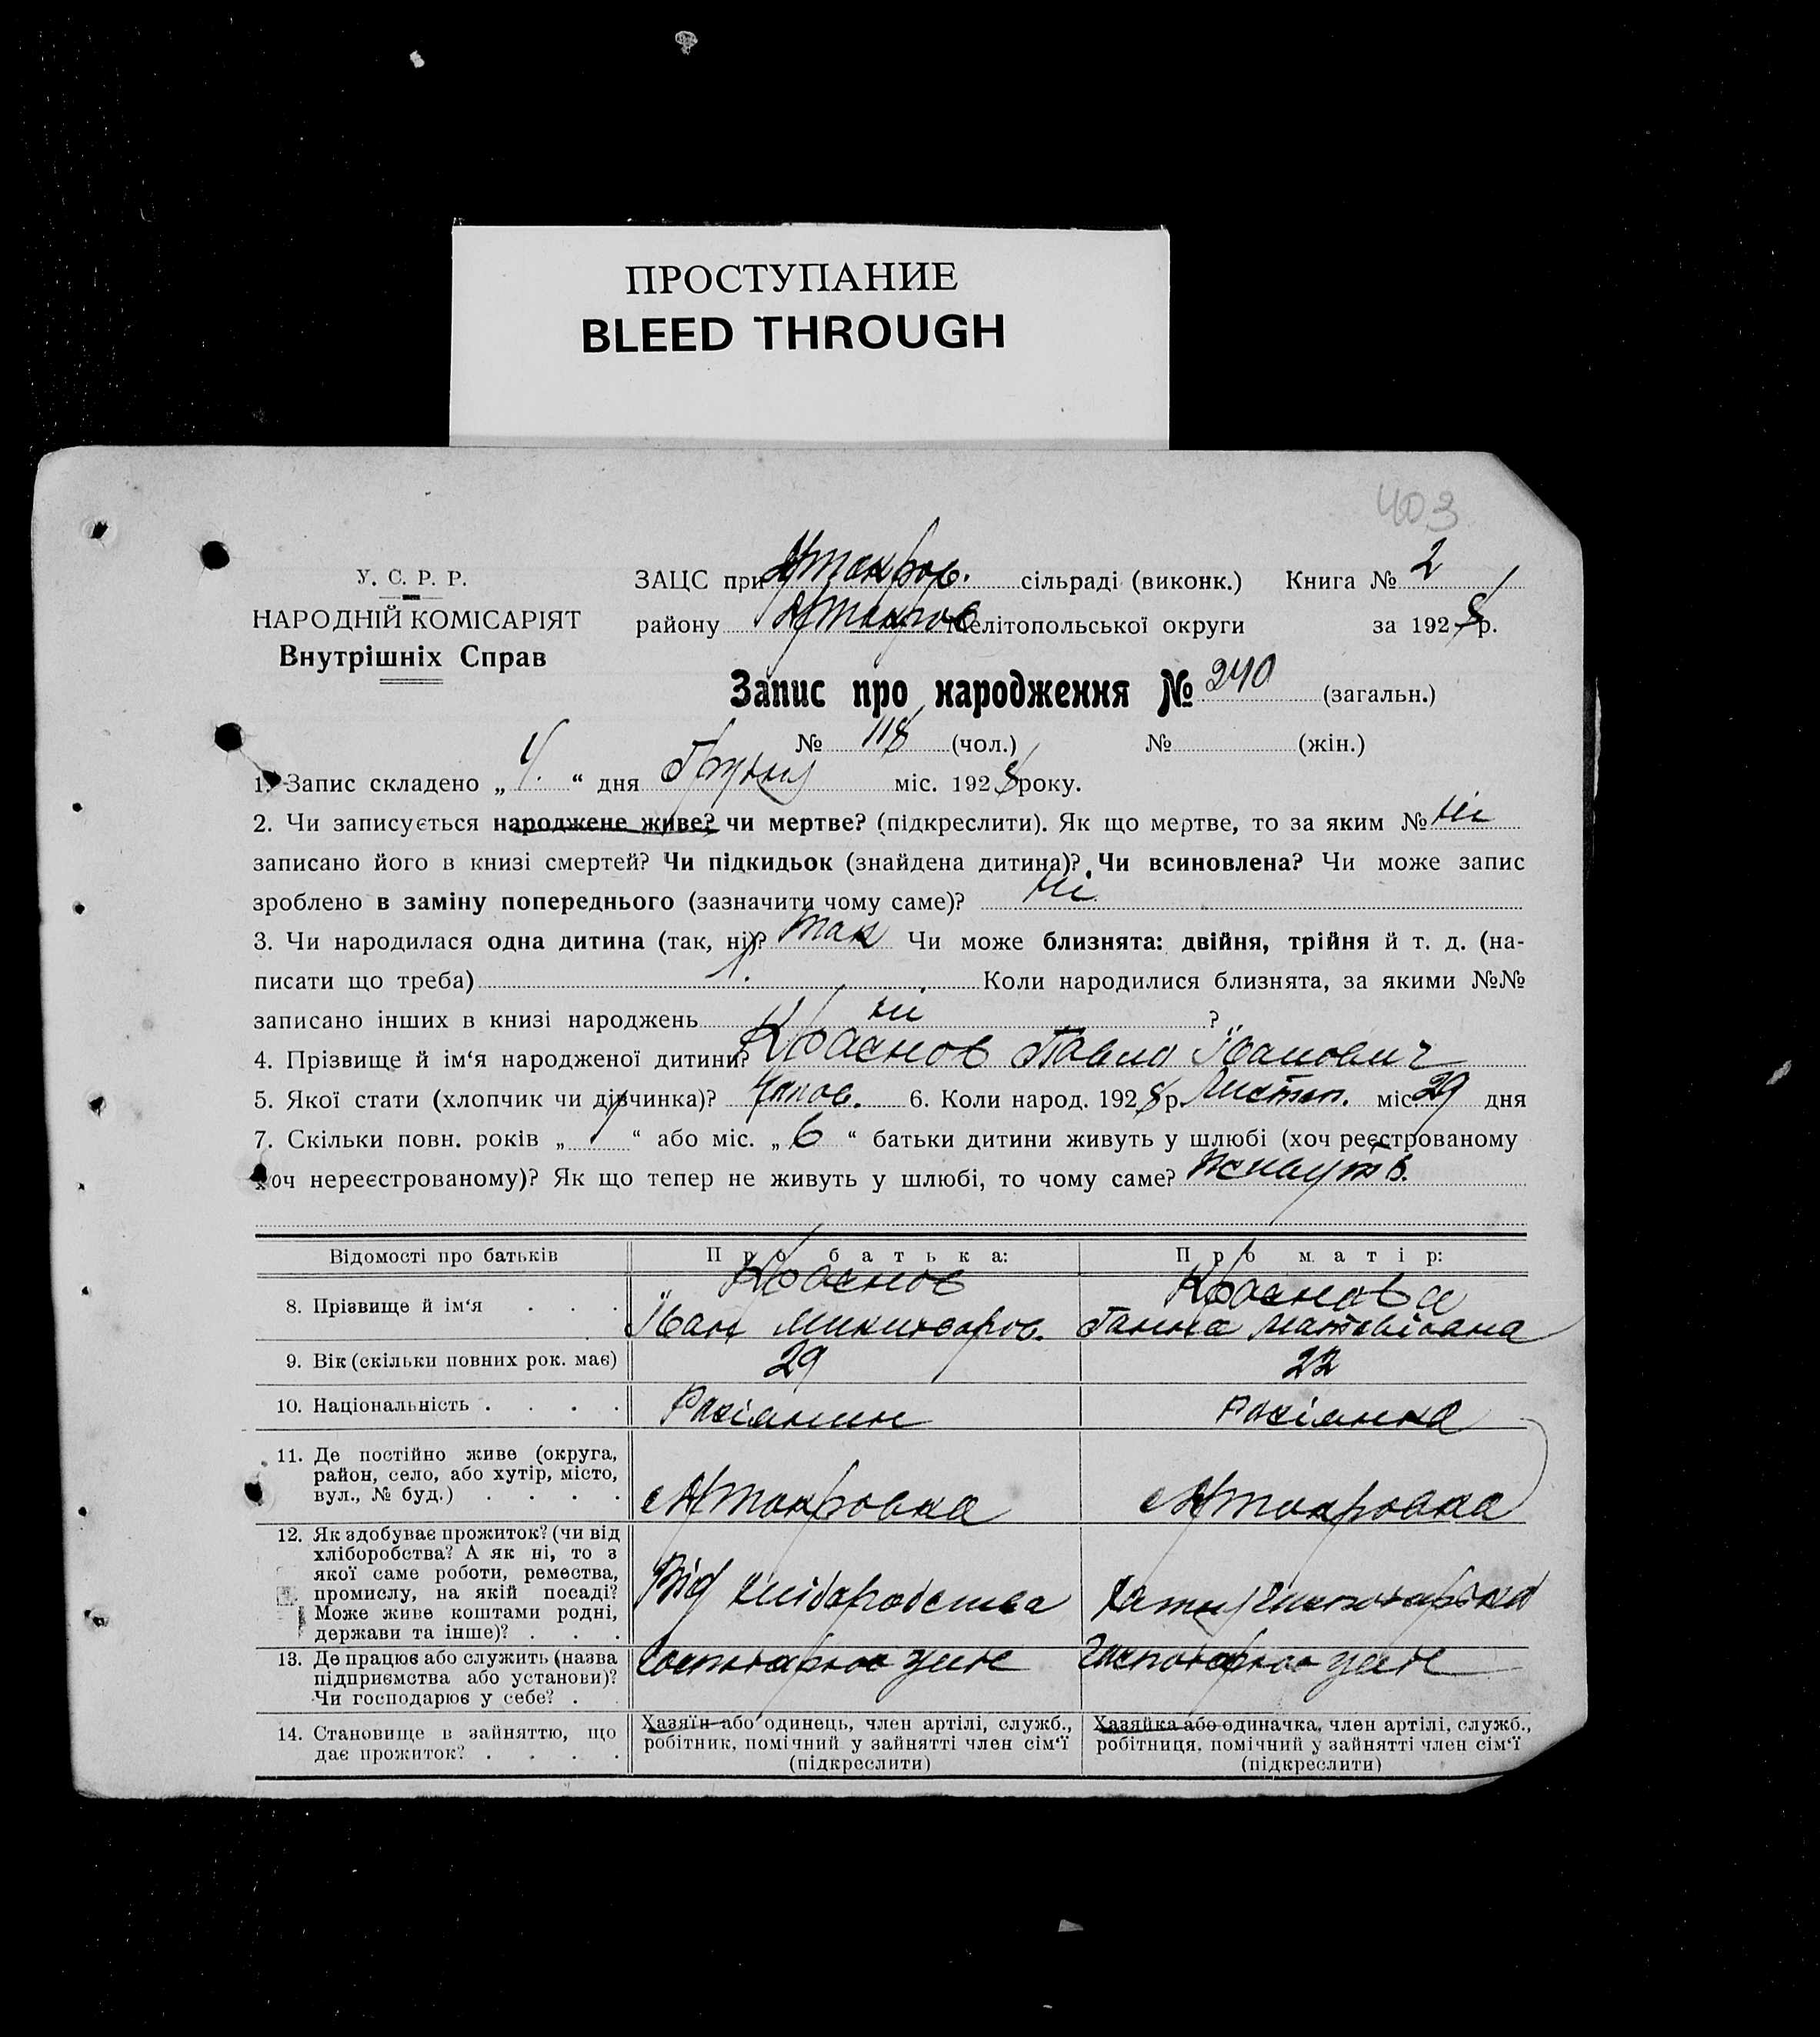 ПРОСТУПАНИЕ
BLEED THROUGH
403
У. С. Р. Р.
НАРОДНІЙ КОМІСАРІЯТ
Внутрішніх Справ
ЗАЦС при сільраді (виконк.) Книга № 2
району Мелітопольської округи за 1928 р.
Запис про народження № 240 (загальн.)
№ 118 (чол.) № (жін.)
1. Запис складено „ 4. “ дня Грудня міс. 1928 року.
2. Чи записується народжене живе? чи мертве? (підкреслити). Як що мертве, то за яким № ні
записано його в книзі смертей? Чи підкидьок (знайдена дитина)? Чи всиновлена? Чи може запис
зроблено в заміну попереднього (зазначити чому саме)? ні
3. Чи народилася одна дитина (так, ні)? так Чи може близнята: двійня, трійня й т. д. (на-
писати що треба) 1. Коли народилися близнята, за якими №№
записано інших в книзі народжень ні ?
4. Прізвище й ім‘я народженої дитини? Краснов Павло Іванович
5. Якої стати (хлопчик чи дівчинка)? Чолов. 6. Коли народ. 1928 р. Листоп. міс. 29 дня
7. Скільки повн. років „ 7 “ або міс. „ 6 “ батьки дитини живуть у шлюбі (хоч реєстрованому
хоч нереєстрованому)? Як що тепер не живуть у шлюбі, то чому саме? Живуть.
Відомості про батьків Про батька: Про матір:
8. Прізвище й ім‘я . . . Краснов Краснова
Іван Ганна
9. Вік (скільки повних рок. має) 29 22
10. Національність . . . . Росіянин Росіянка
11. Де постійно живе (округа,
район, село, або хутір, місто,
вул., № буд.) . . . .
12. Як здобуває прожиток? (чи від
хліборобства? А як ні, то з
якої саме роботи, ремества,
промислу, на якій посаді?
Може живе коштами родні,
держави та інше)? . . .
Від хліборобства
13. Де працює або служить (назва
підприємства або установи)?
Чи господарює у себе? .
14. Становище в зайняттю, що
дає прожиток? . . . .
Хазяїн або одинець, член артілі, служб.,
робітник, помічний у зайнятті член сім‘ї
(підкреслити)
Хазяйка або одиначка, член артілі, служб.,
робітниця, помічний у зайнятті член сім‘ї
(підкреслити)